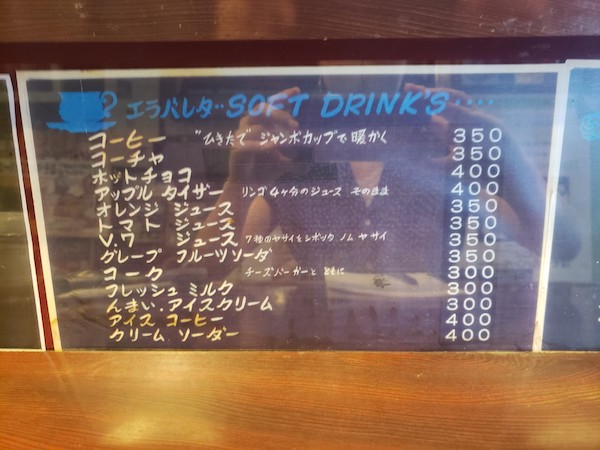 エラバレタ･･SOFT DRINK'S････
コーヒー "ひきたて" ジャンボカップで 暖かく 350
コーチャ 350
ホットチョコ 400
アップル タイザー リンゴ4ヶ分のジュース そのまま 400
オレンジ ジュース 350
トマト ジュース 350
V.7 ジュース 7種のヤサイをシボッタ ノム ヤサイ 350
グレープ フルーツソーダ 350
コーク チーズバーガーと ともに 300
フレッシュ ミルク 300
んまい.アイスクリーム 300
アイス コーヒー 400
クリーム ソーダー 400